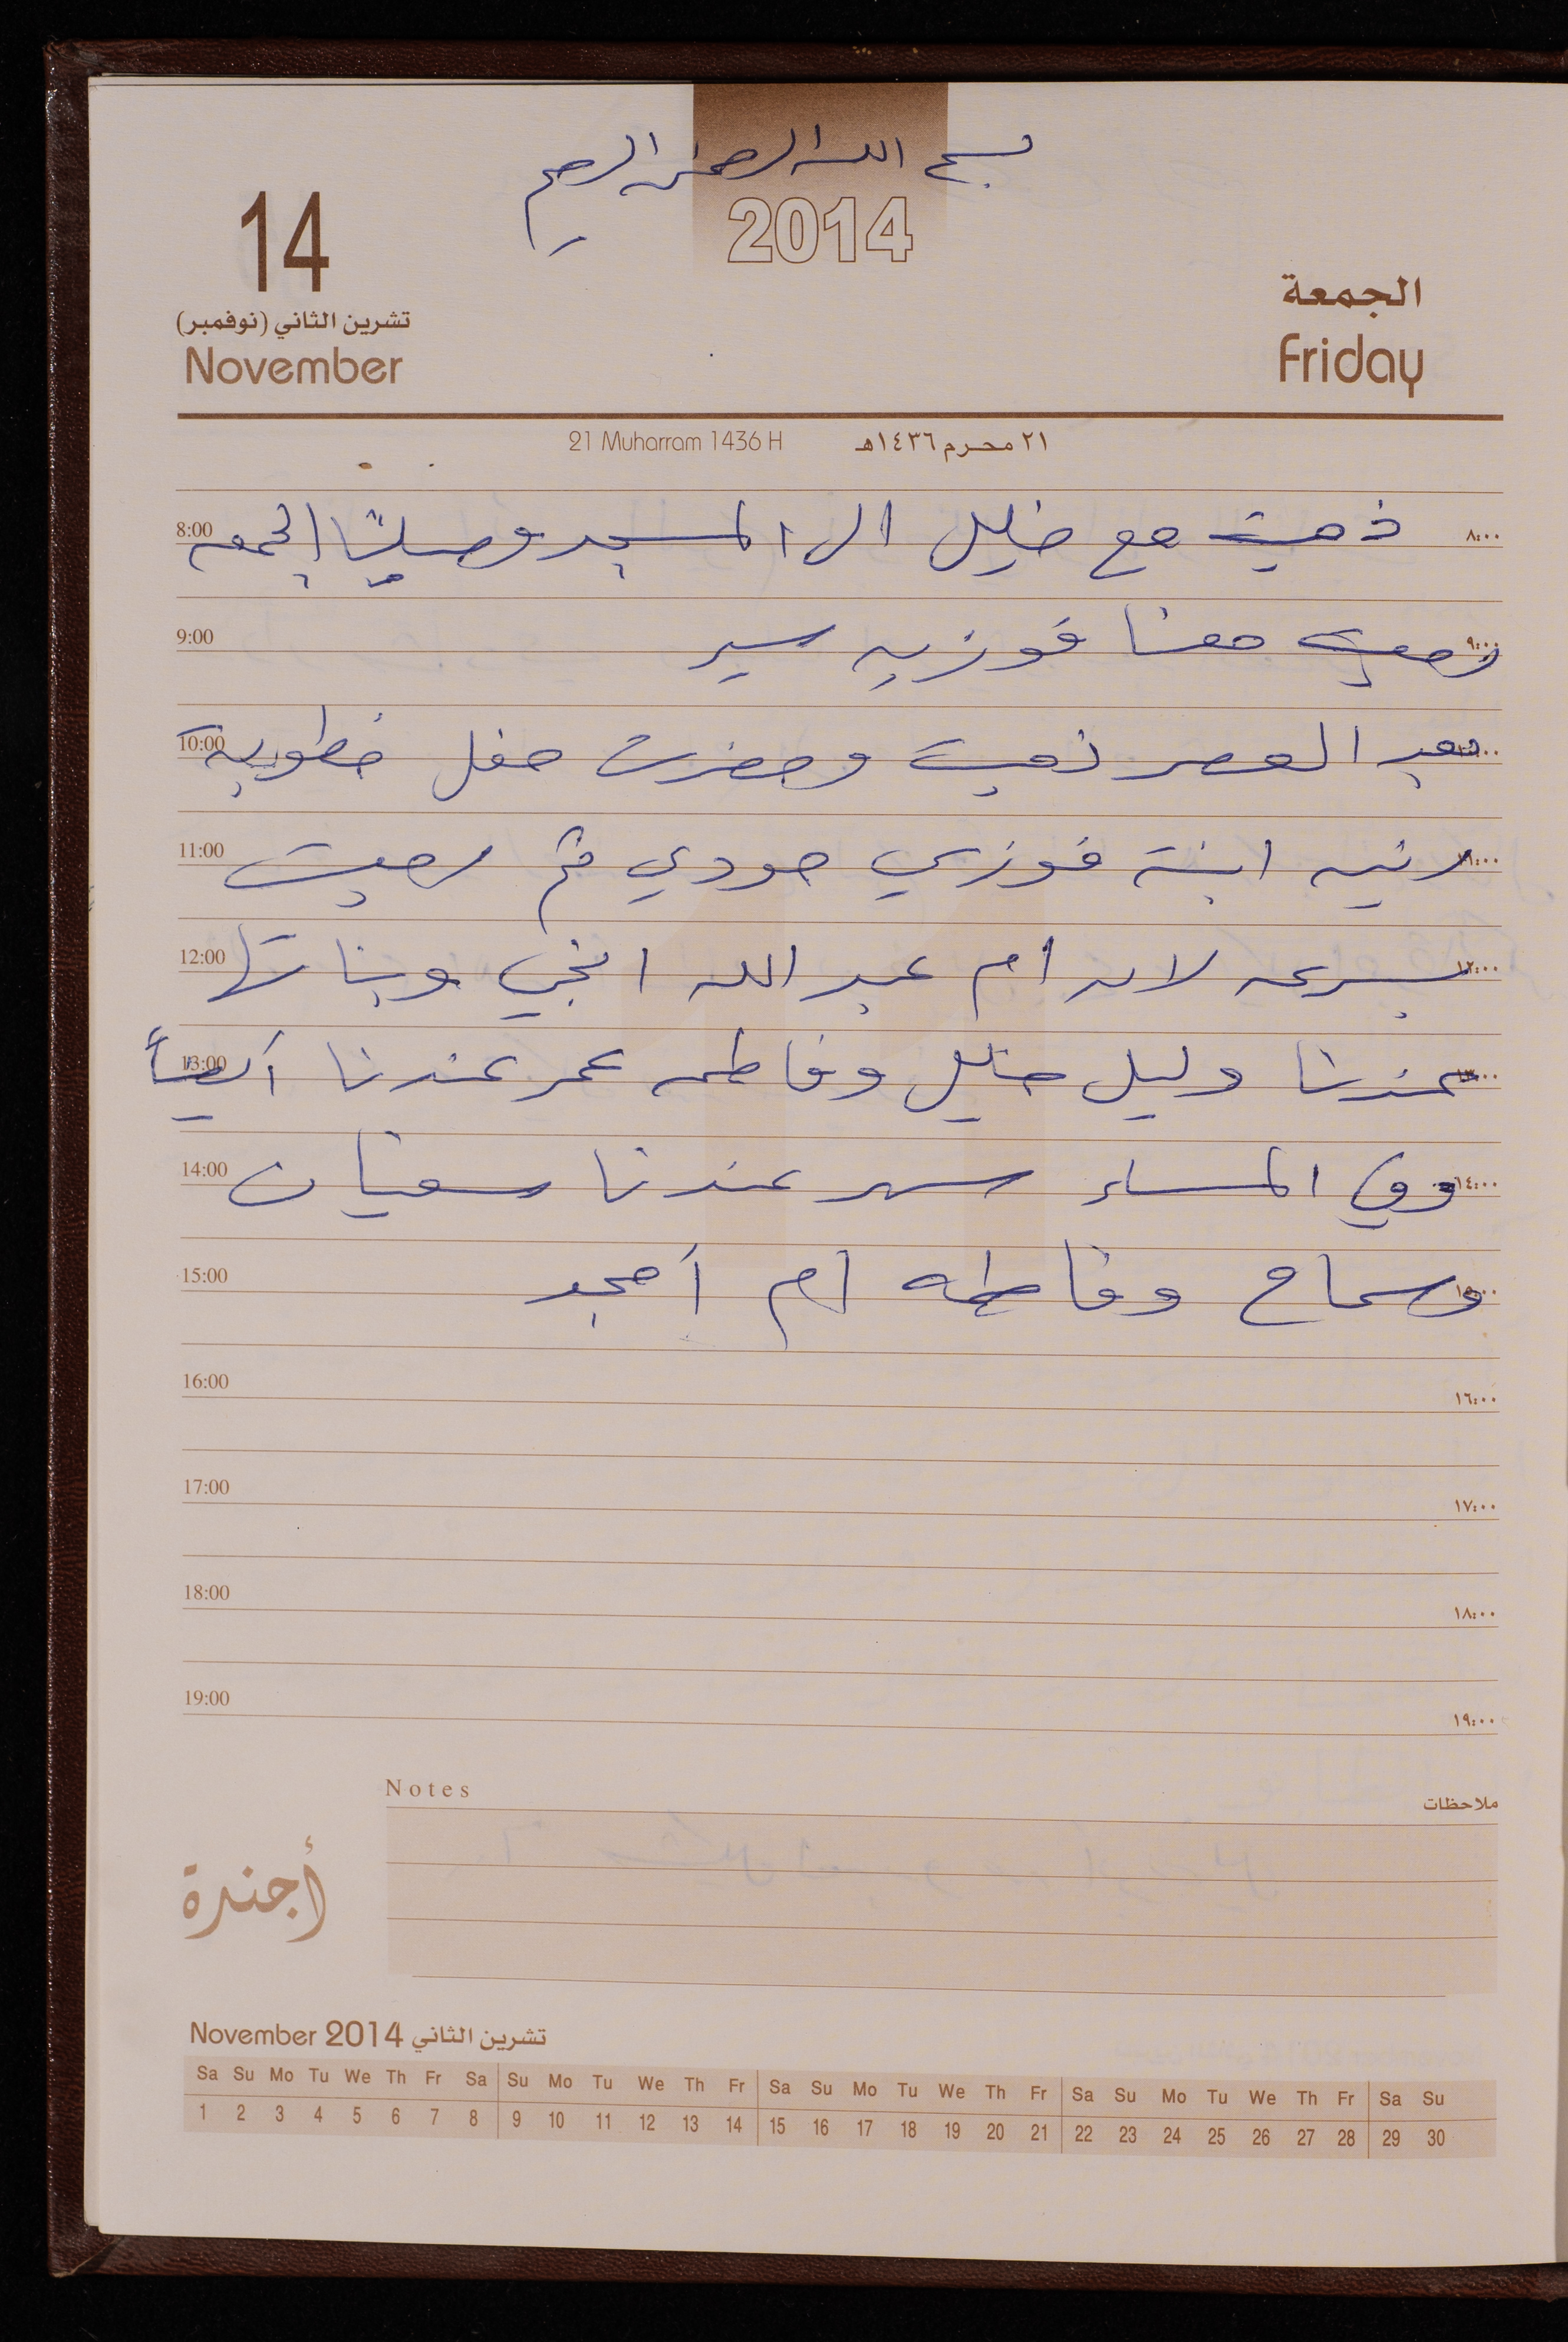 بسم الله الرحمن الرحيم
2014
14
تشرين الثاني (نوفمبر)
November
الجمعة
Friday
21 Muharram 1436 H ٢١ محرم ١٤٣٦هـ
8:00 ذهبت مع خليل الى المسجد وصلينا الجمعه ٨:٠٠
9:00 معنا فوزيه سير ٩:٠٠
10:00 بعد العصر ذهبت وحضرت حفل خطوبة ١٠:٠٠
11:00 رنيه ابنة فوزي حودي ثم رجعت ١١:٠٠
12:00 بسرعه لان ام عبد الله اختي وبناتها ١٢:٠٠
13:00 عندنا وليل خليل وفاطمه عمر عندنا أيضاً ١٣:٠٠
14:00 وفي المساء سهر عندنا سفيان ١٤:٠٠
15:00 وسماح وفاطمه ام أمجد ١٥:٠٠
16:00 ١٦:٠٠
17:00 ١٧:٠٠
18:00 ١٨:٠٠
19:00 ١٩:٠٠
Notes ملاحظات
أجندة
November 2014 تشرين الثاني
Sa Su Mo Tu We Th Fr Sa Su Mo Tu We Th Fr Sa Su Mo Tu We Th Fr Sa Su Mo Tu We Th Fr Sa Su
1 2 3 4 5 6 7 8 9 10 11 12 13 14 15 16 17 18 19 20 21 22 23 24 25 26 27 28 29 30